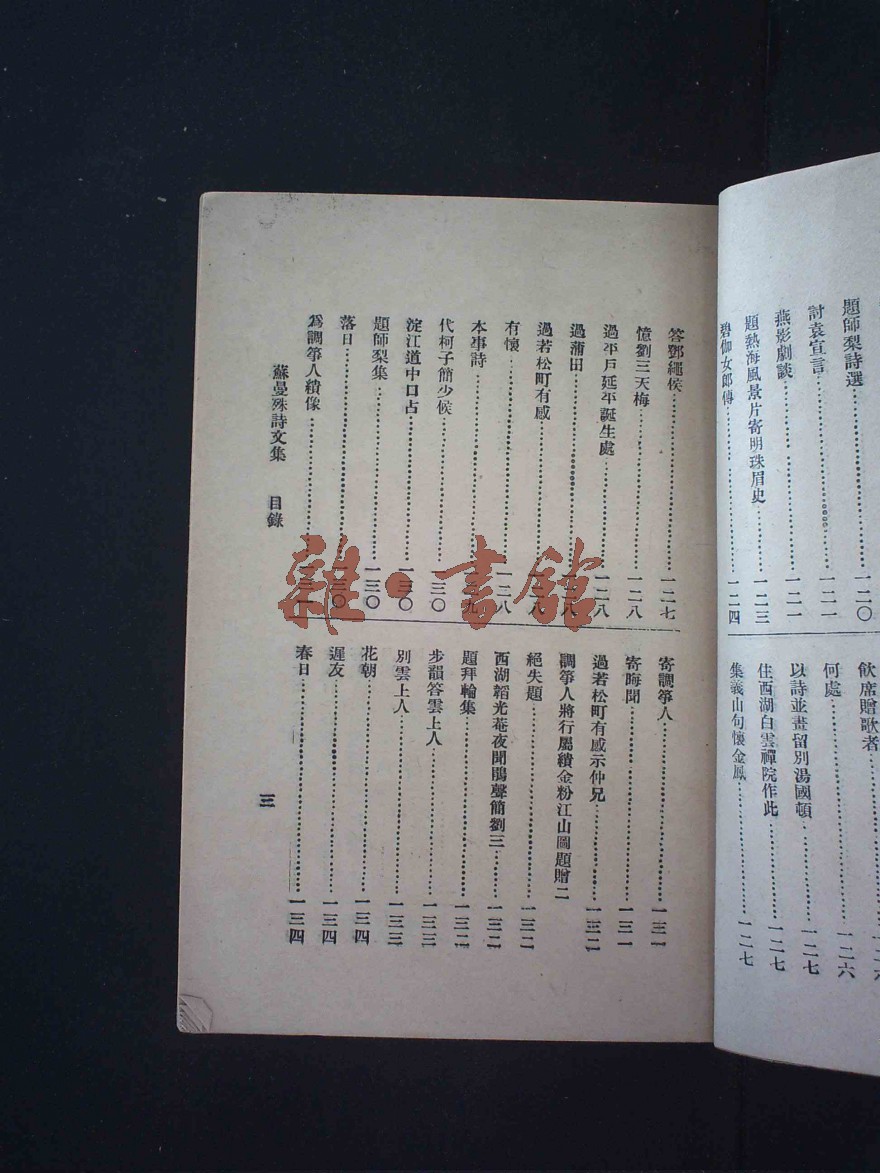 題師梨詩選⋯⋯一二〇
討袁宣言⋯⋯一二一
燕影劇談⋯⋯一二一
題熱海風景片寄明珠眉史⋯⋯一二三
碧伽女郎傳⋯⋯一二四
飲席贈歌者⋯⋯一二六
何處⋯⋯一二六
以詩並畫留別湯國頓⋯⋯一二七
住西湖白雲禪院作此⋯⋯一二七
集義山句懷金鳳⋯⋯一二七
答鄧繩侯⋯⋯一二七
憶劉三天梅⋯⋯一二八
過平戶延平誕生處⋯⋯一二八
過蒲田⋯⋯一二八
過若松町有感⋯⋯一二八
有懷⋯⋯一二八
本事詩⋯⋯一二九
代柯子簡少候⋯⋯一三〇
淀江道中口占⋯⋯一三〇
題師梨集⋯⋯一三〇
落日⋯⋯一三〇
爲調箏人繢像⋯⋯一三一
寄調箏人⋯⋯一三一
寄晦聞⋯⋯一三一
過若松町有感示仲兄⋯⋯一三二
調箏人將行屬繢金粉江山圖題贈二
絕失題⋯⋯一三二
西湖韜光菴夜聞鵑聲簡劉三⋯⋯一三二
題拜輪集⋯⋯一三二
步韻答雲上人⋯⋯一三三
別雲上人⋯⋯一三三
花朝⋯⋯一三四
遲友⋯⋯一三四
春日⋯⋯一三四
蘇曼殊詩文集 目錄
三
雜·書館